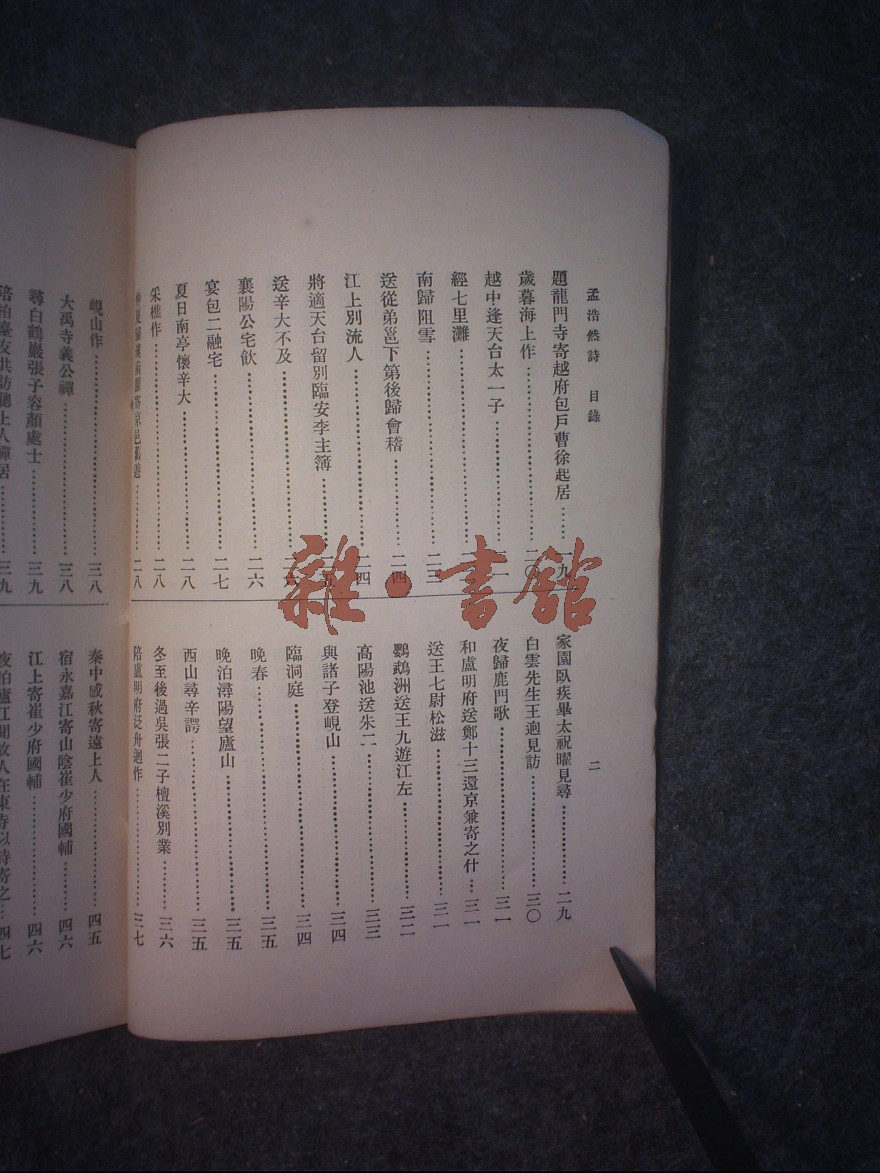 孟浩然詩 目錄
二
題龍門寺寄越府包戶曹徐起居……一九
歲暮海上作……二〇
越中逢天台太一子……一
經七里灘……
南歸阻雪……二三
送從弟邕下第後歸會稽……二四
江上別流人……二四
將適天台留別臨安李主簿……二五
送辛大不及……二六
襄陽公宅飲……二六
宴包二融宅……二七
夏日南亭懷辛大……二八
采樵作……二八
仲夏歸漢南園寄京邑舊遊……二八
家園臥疾畢太祝曜見尋……二九
白雲先生王迥見訪……三〇
夜歸鹿門歌……三一
和盧明府送鄭十三還京兼寄之什……三一
送王七尉松滋……三一
鸚鵡洲送王九遊江左……三二
高陽池送朱二……三三
與諸子登峴山……三四
臨洞庭……三四
晚春……三五
晚泊潯陽望廬山……三五
西山尋辛諤……三五
冬至後過吳張二子檀溪別業……三六
陪盧明府泛舟迴作……三七
峴山作……三八
大禹寺義公禪……三八
尋白鶴巖張子容顏處士……三九
陪柏臺友共訪聰上人禪居……三九
秦中感秋寄遠上人……四五
宿永嘉江寄山陰崔少府國輔……四六
江上寄崔少府國輔……四六
夜泊廬江聞故人在東寺以詩寄之……四七
雜·書館